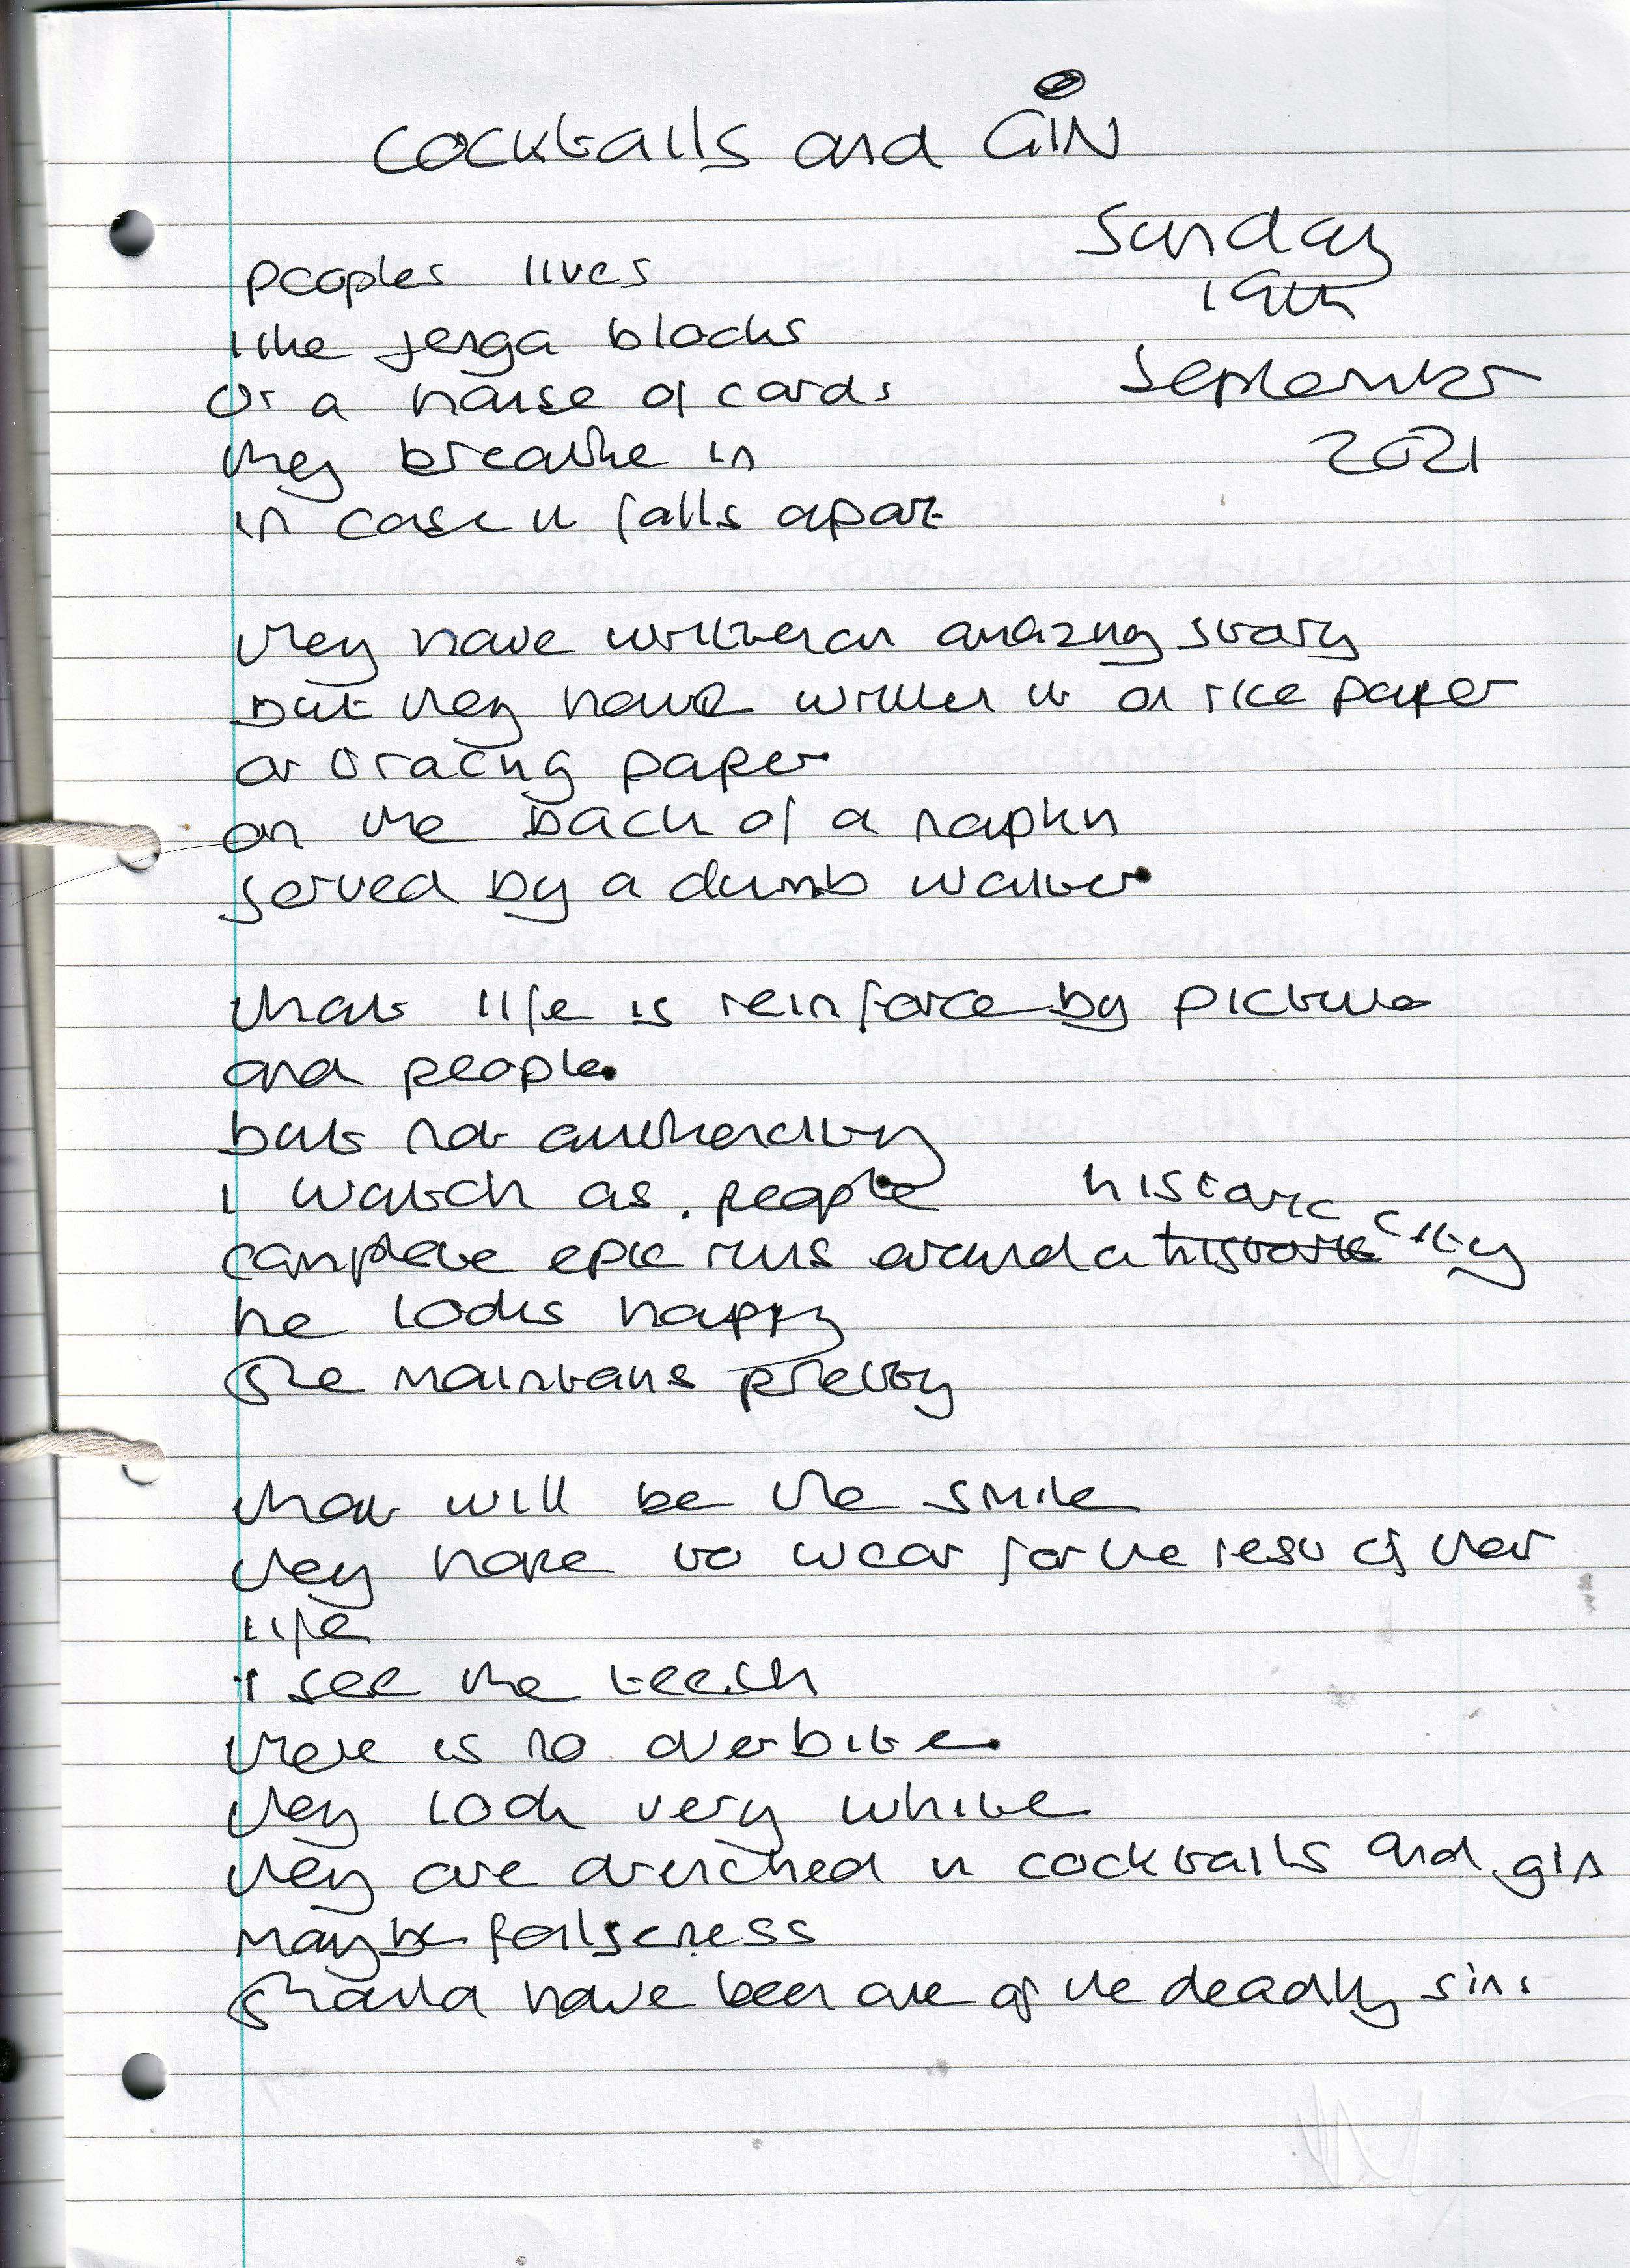 Cocktails and GIN
Sunday
19th
September
2021
peoples lives
like jenga blocks
or a house of cards
they breathe in
in case it falls apart
they have written an amazing story
but they have written it on rice paper
or tracing paper
on the back of a napkin
served by a dumb waiter
that life is reinforce by picture
and people
but not authenticity
I watch as people
historic
complete epic runs around a historic city
he looks happy
she maintains pretty
that will be the smile
they have to wear for the rest of their
life
I see the teeth
there is no overbite
they look very white
they are drenched in cocktails and gin
maybe falseness
should have been one of the deadly sins